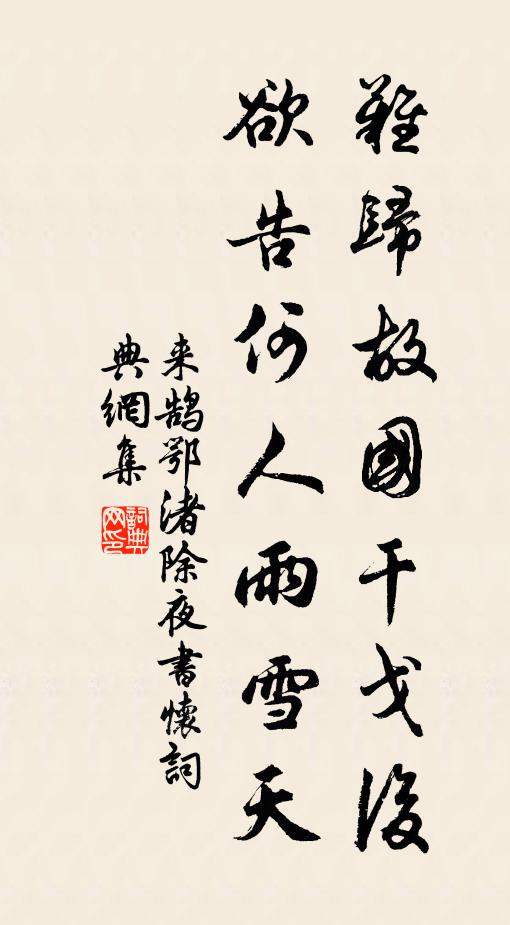 難歸故國干戈後
欲告何人雨雪天
来鵠鄂渚除夜書懷詞
典網集
詞典
网印